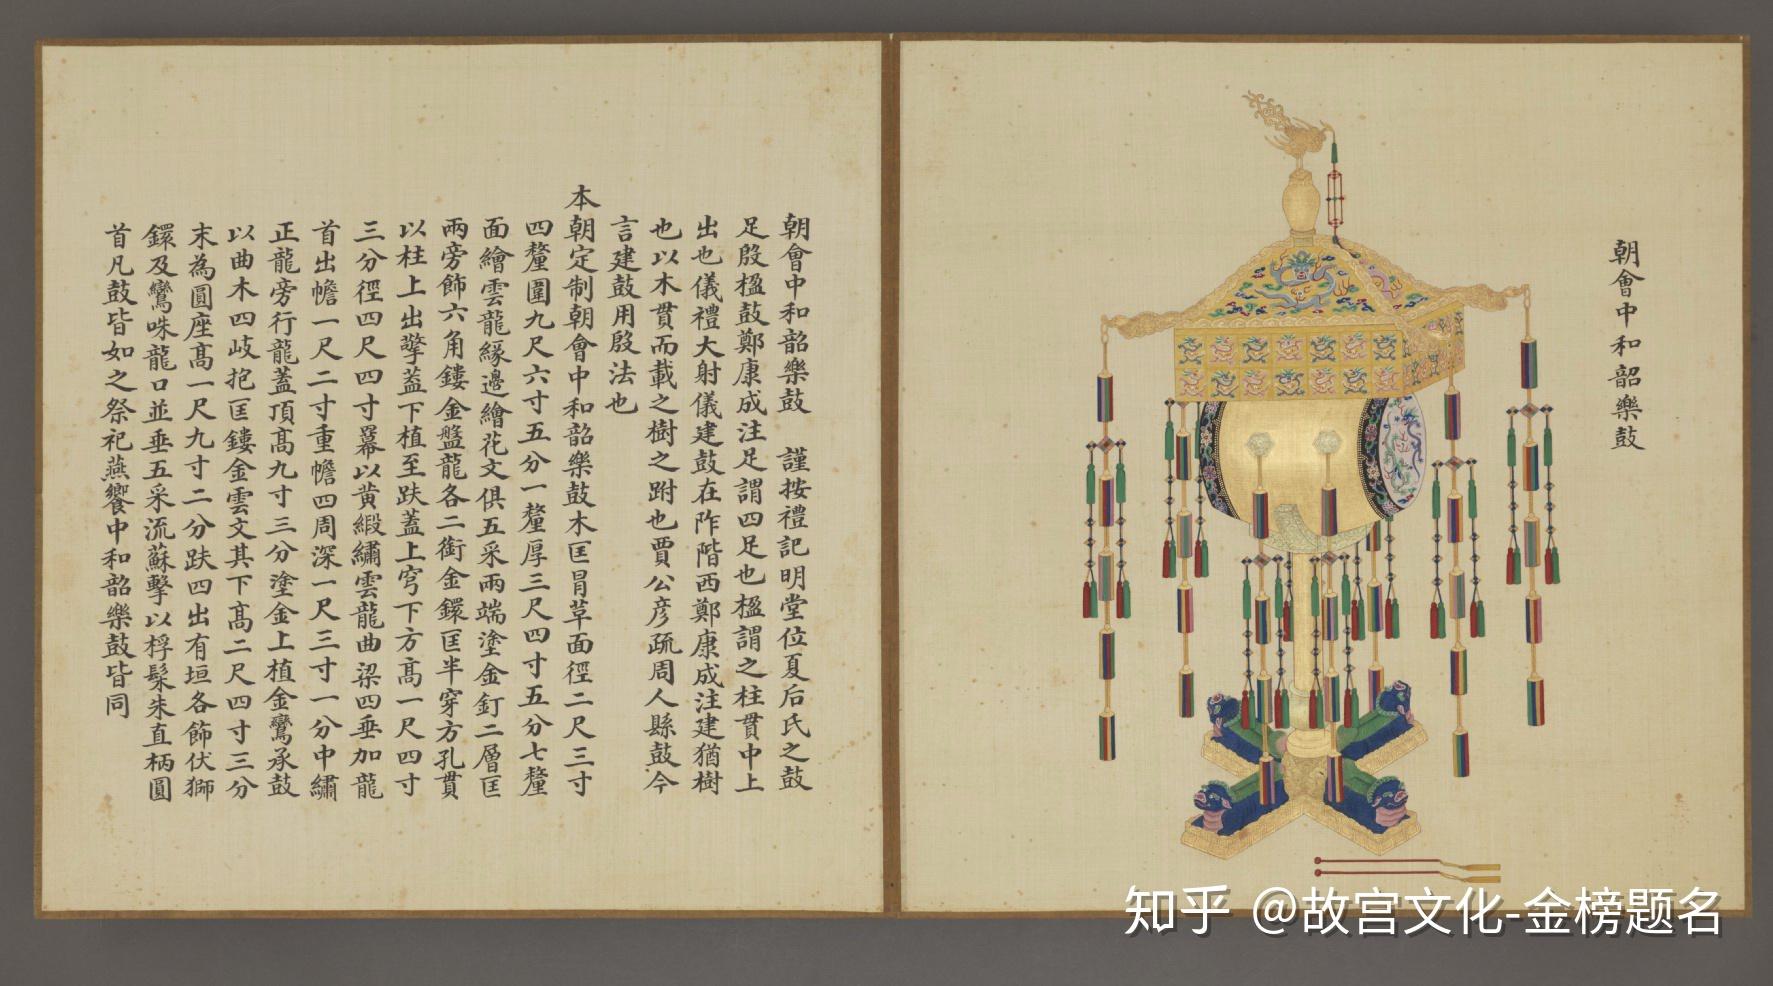 朝會中和韶樂鼓
朝會中和韶樂鼓　謹按禮記明堂位夏后氏之鼓
足殷楹鼓鄭康成注足謂四足也楹謂之柱貫中上
出也儀禮大射儀建鼓在阼階西鄭康成注建猶樹
也以木貫而載之樹之跗也賈公彥疏周人縣鼓今
言建鼓用殷法也
本朝定制朝會中和韶樂鼓木匡冒革面徑二尺三寸
四釐圍九尺六寸五分一釐厚三尺四寸五分七釐
面繪雲龍緣邊繪花文俱五采兩端塗金釘二層匡
兩旁飾六角鏤金盤龍各二銜金鐶匡半穿方孔貫
以柱上出擎蓋下植至趺蓋上穹下方高一尺四寸
三分徑四尺四寸冪以黃緞繡雲龍曲梁四垂加龍
首出幨一尺二寸重幨四周深一尺三寸一分中繡
正龍旁行龍蓋頂高九寸三分塗金上植金鸞承鼓
以曲木四歧抱匡鏤金雲文其下高二尺四寸三分
末為圓座高一尺九寸二分趺四出有垣各飾伏獅
鐶及鸞咮龍口並垂五采流蘇擊以桴髹朱直柄圓
首凡鼓皆如之祭祀燕饗中和韶樂鼓皆同
知乎 @故宫文化-金榜题名